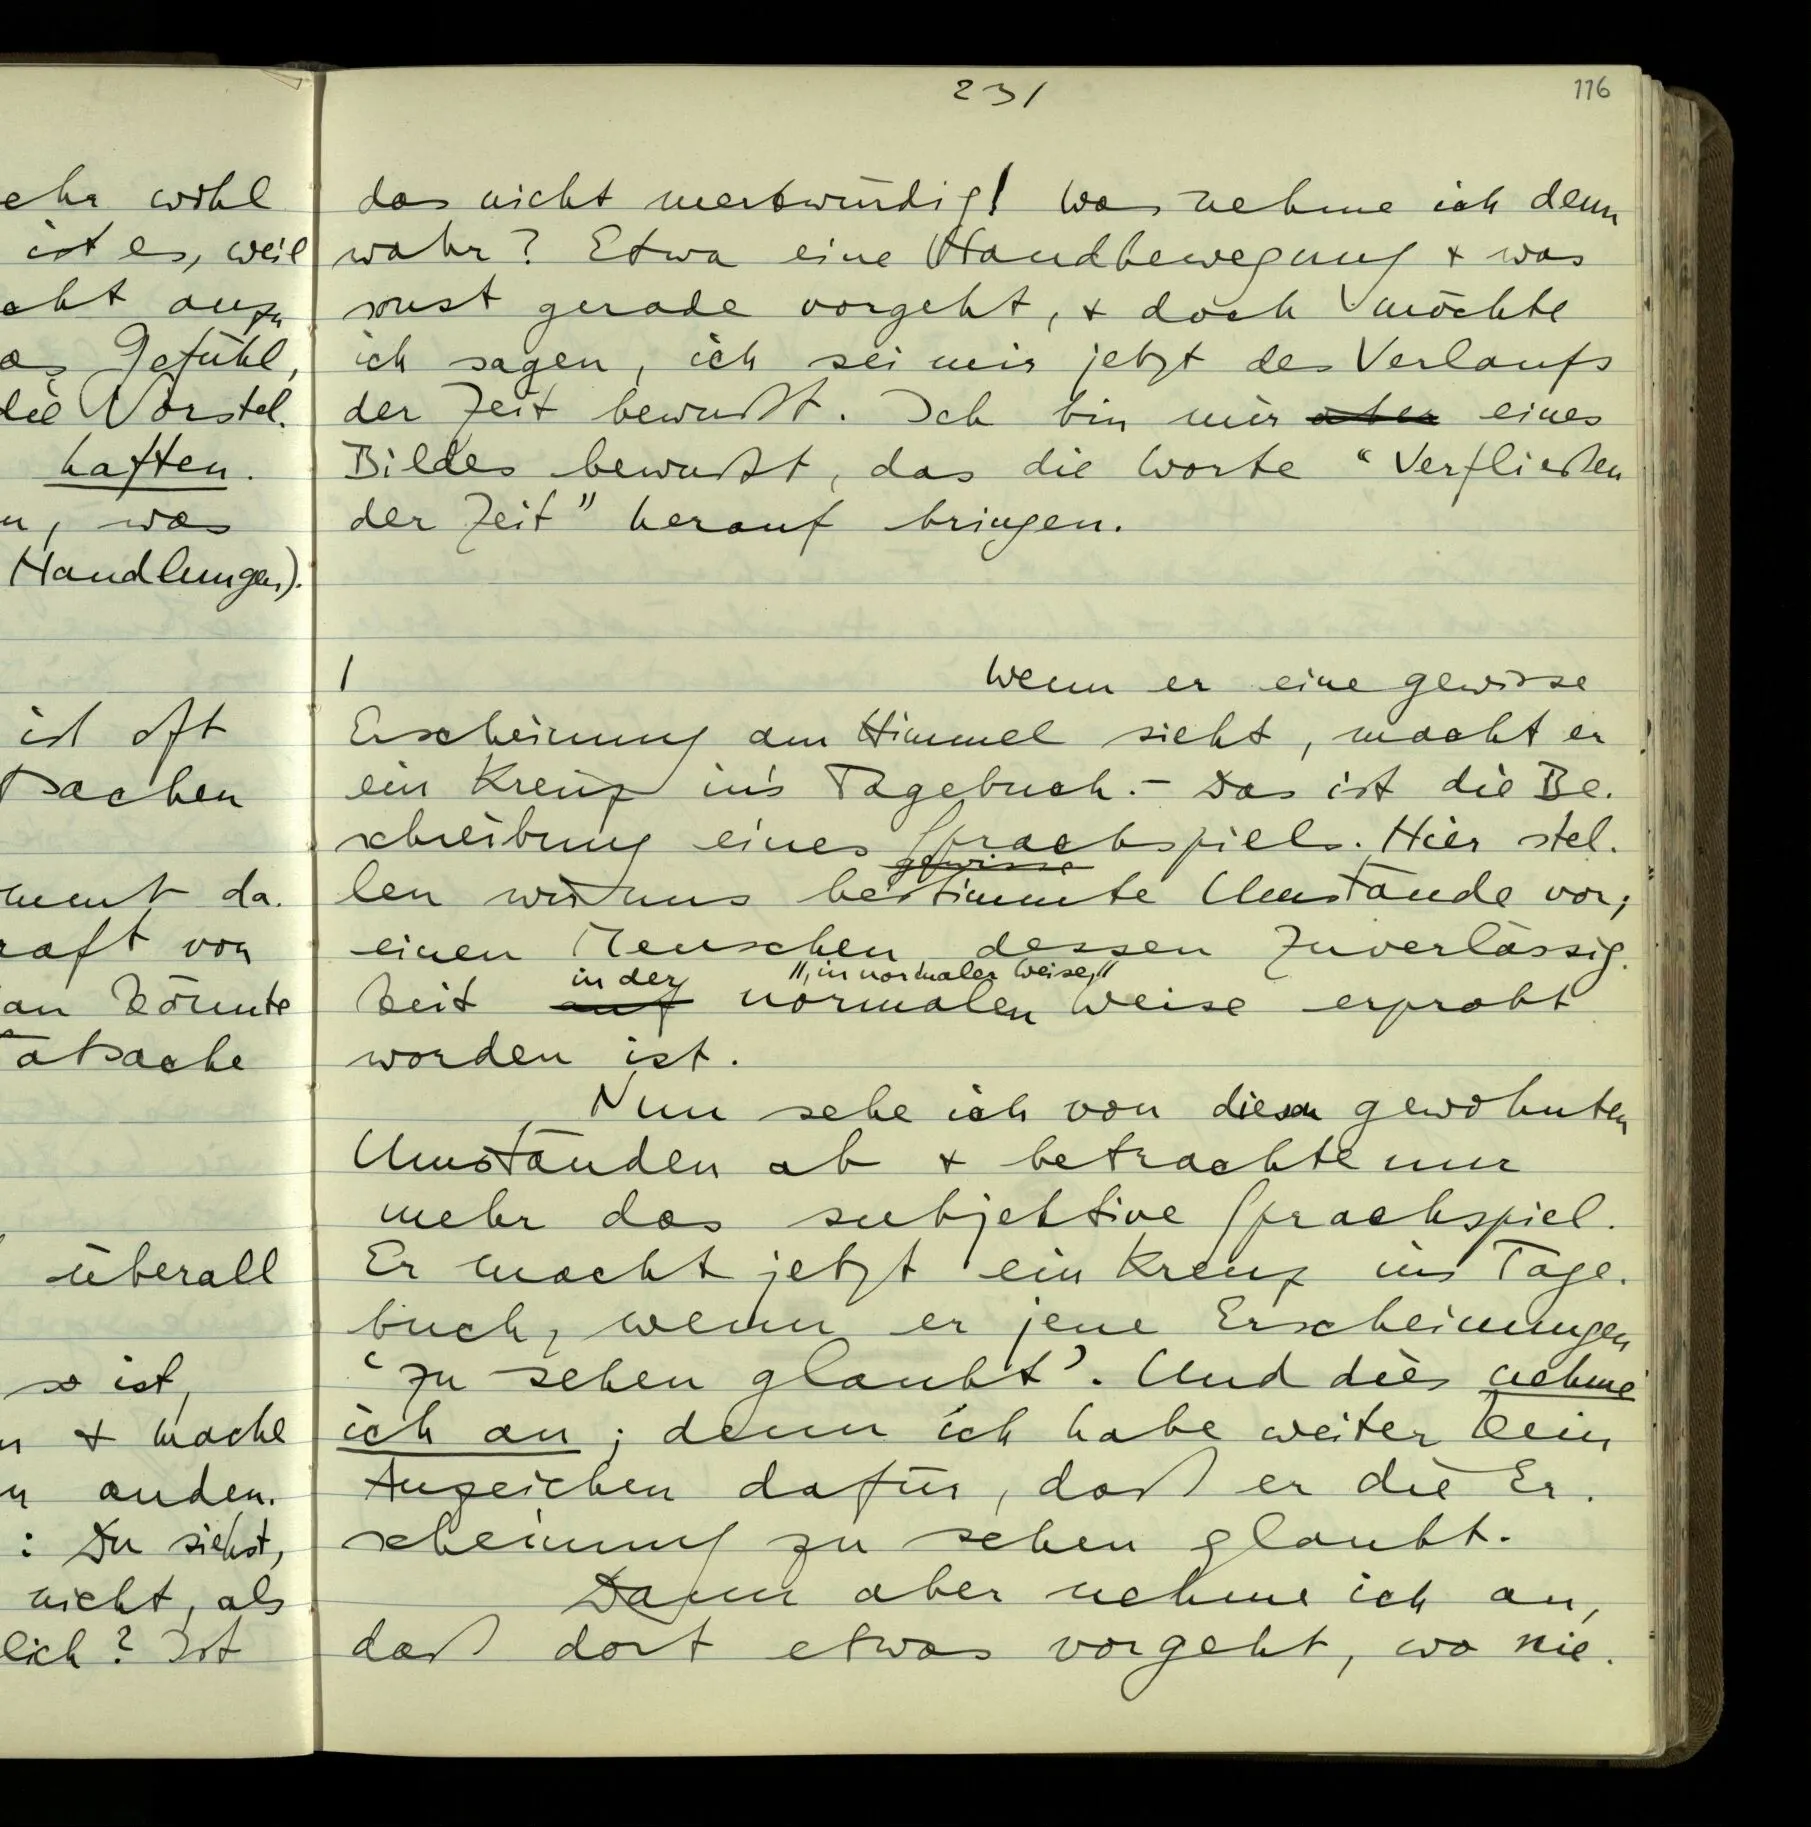 231
116
ehr wohl
ist es, weil
cht anzu
as Gefühl,
die Vorstel.
haften.
n, was
Handlungen).
ist oft
Sachen
mmt da.
raft von
an könnte
atsache
überall
so ist,
n & mache
n anden.
: Du siehst,
nicht, als
lich? Ist
das nicht merkwürdig! Was nehme ich denn
wahr? Etwa eine Handbewegung & was
sonst gerade vorgeht, & doch möchte
ich sagen, ich sei mir jetzt des Verlaufs
der Zeit bewußt. Ich bin mir aber eines
Bildes bewußt, das die Worte “Verfließen
der Zeit” herauf bringen.
/ Wenn er eine gewisse
Erscheinung am Himmel sieht, macht er
ein Kreuz in's Tagebuch. – Das ist die Be.
schreibung eines Sprachspiels. Hier stel.
gewisse
len wir uns bestimmte Umstände vor;
einen Menschen dessen Zuverlässig.
in der ", in normaler Weise,"
keit auf normalen Weise erprobt
worden ist.
Nun sehe ich von diesen gewohnten
Umständen ab & betrachte nur
mehr das subjektive Sprachspiel.
Er macht jetzt ein Kreuz ins Tage.
buch, wenn er jene Erscheinungen
‘zu sehen glaubt’. Und dies nehme
ich an; denn ich habe weiter kein
Anzeichen dafür, daß er die Er.
scheinung zu sehen glaubt.
Dann aber nehme ich an,
daß dort etwas vorgeht, wo nie.